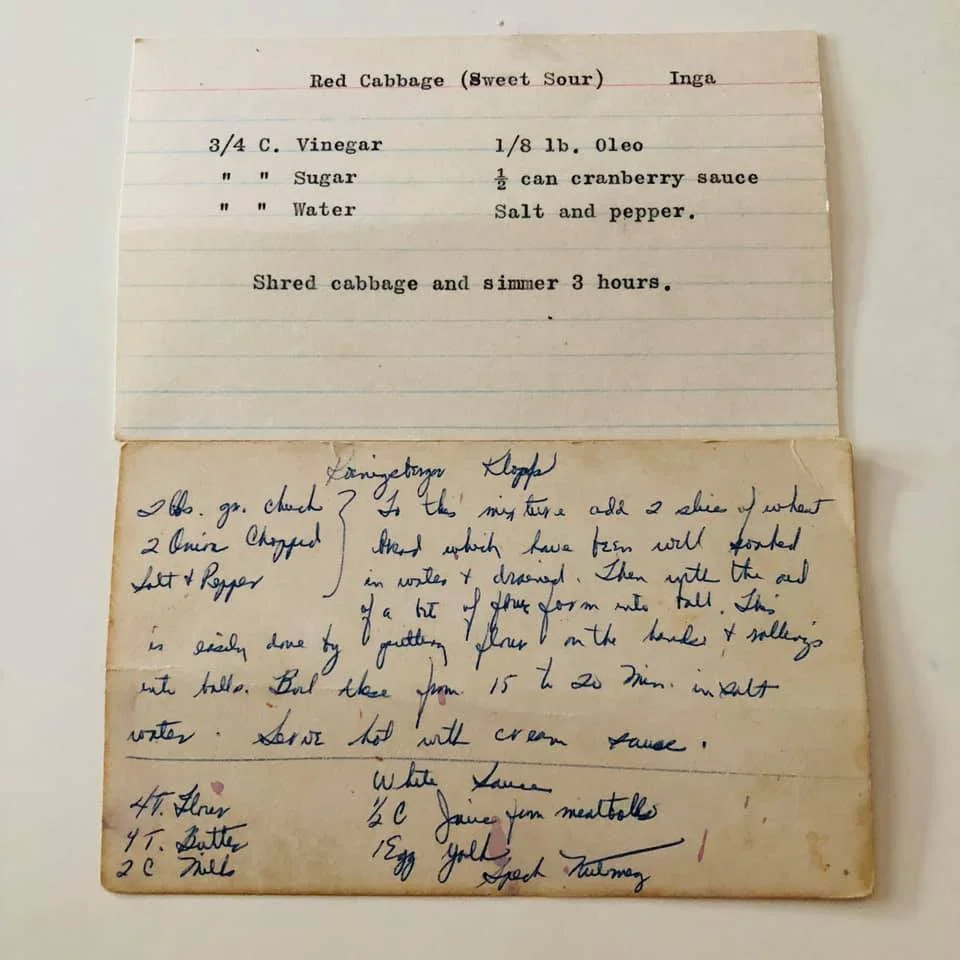 Red Cabbage (Sweet Sour) Inga
3/4 C. Vinegar 1/8 lb. Oleo
" " Sugar ½ can cranberry sauce
" " Water Salt and pepper.
Shred cabbage and simmer 3 hours.
Koenigsberger Klopps
2 lbs. gr. chuck } To this mixture add 2 slices of wheat
2 Onion Chopped bread which have been well soaked
Salt & Pepper in water & drained. Then with the aid
of a bit of flour form into ball. This
is easily done by putting flour on the hands & rolling
into balls. Boil these from 15 to 20 Min. in salt
water. Serve hot with cream sauce.
White Sauce
4 T. Flour ½ C Juice from meatballs
4 T. Butter 1 Egg yolk
2 C Milk Speck Nutmeg